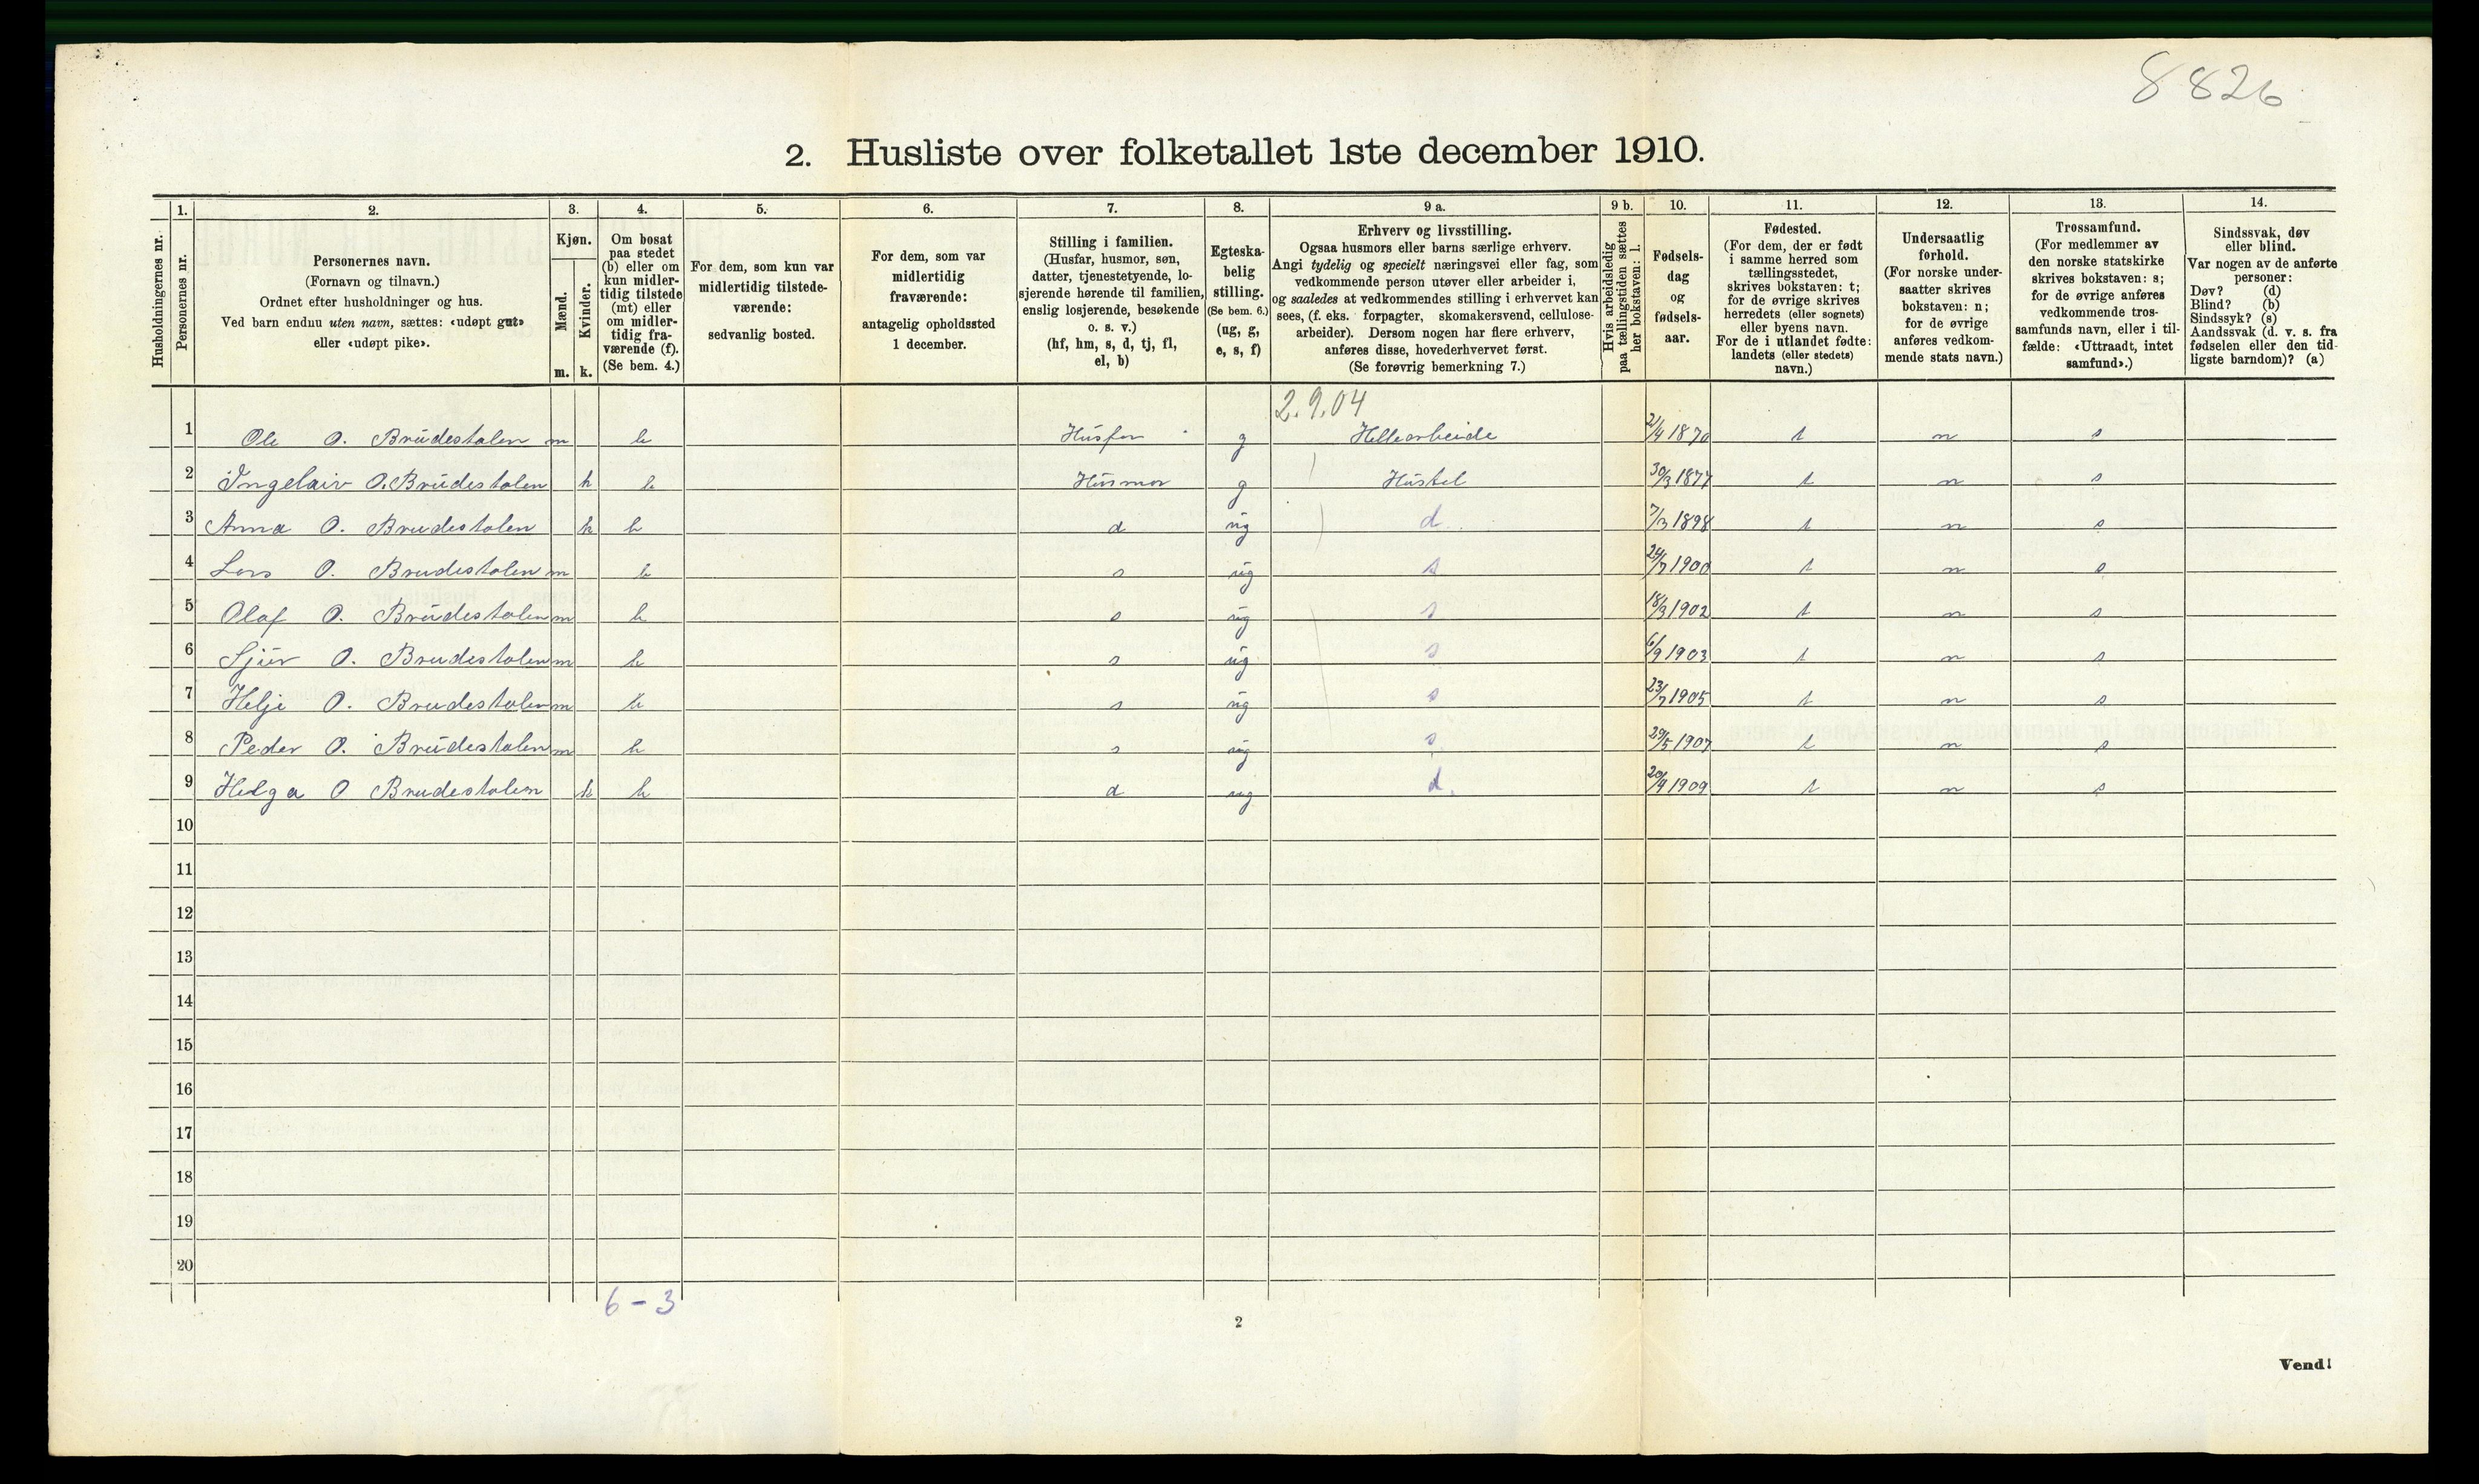 8826
2. Husliste over folketallet 1ste december 1910.
Husholdningernes nr.
1.
Personernes nr.
2.
Personernes navn.
(Fornavn og tilnavn.)
Ordnet efter husholdninger og hus.
Ved barn endnu uten navn, sættes: «udøpt gut»
eller «udøpt pike».
3.
Kjøn.
Mænd.
Kvinder.
m. k.
4.
Om bosat
paa stedet
(b) eller om
kun midler-
tidig tilstede
(mt) eller
om midler-
tidig fra-
værende (f).
(Se bem. 4.)
5.
For dem, som kun var
midlertidig tilstede-
værende:
sedvanlig bosted.
6.
For dem, som var
midlertidig
fraværende:
antagelig opholdssted
1 december.
7.
Stilling i familien.
(Husfar, husmor, søn,
datter, tjenestetyende, lo-
sjerende hørende til familien,
enslig losjerende, besøkende
o. s. v.)
(hf, hm, s, d, tj, fl,
el, b)
8.
Egteska-
belig
stilling.
(Se bem. 6.)
(ug, g,
e, s, f)
9 a.
Erhverv og livsstilling.
Ogsaa husmors eller barns særlige erhverv.
Angi tydelig og specielt næringsvei eller fag, som
vedkommende person utøver eller arbeider i,
og saaledes at vedkommendes stilling i erhvervet kan
sees, (f. eks. forpagter, skomakersvend, cellulose-
arbeider). Dersom nogen har flere erhverv,
anføres disse, hovederhvervet først.
(Se forøvrig bemerkning 7.)
9 b.
Hvis arbeidsledig
paa tællingstiden sættes
her bokstaven: l.
10.
Fødsels-
dag
og
fødsels-
aar.
11.
Fødested.
(For dem, der er født
i samme herred som
tællingsstedet,
skrives bokstaven: t;
for de øvrige skrives
herredets (eller sognets)
eller byens navn.
For de i utlandet fødte:
landets (eller stedets)
navn.)
12.
Undersaatlig
forhold.
(For norske under-
saatter skrives
bokstaven: n;
for de øvrige
anføres vedkom-
mende stats navn.)
13.
Trossamfund.
(For medlemmer av
den norske statskirke
skrives bokstaven: s;
for de øvrige anføres
vedkommende tros-
samfunds navn, eller i til-
fælde: «Uttraadt, intet
samfund».)
14.
Sindssvak, døv
eller blind.
Var nogen av de anførte
personer:
Døv? (d)
Blind? (b)
Sindssyk? (s)
Aandssvak (d. v. s. fra
fødselen eller den tid-
ligste barndom)? (a)
2.9.04
1 Ole O. Brudestolen m b Husfar g 2/4 1870 t n s
2 O. Brudestolen k b Husmor g Hustel 30/3 1877 t n s
3 Anna O. Brudestolen k b d ug d 7/3 1898 t n s
4 Lars O. Brudestolen m b s ug s 24/7 1900 t n s
5 Olaf O. Brudestolen m b s ug s 18/3 1902 t n s
6 Sjur O. Brudestolen m b s ug s 6/9 1903 t n s
7 Helje O. Brudestolen m b s ug s 23/7 1905 t n s
8 Peder O. Brudestolen m b s ug s 29/5 1907 t n s
9 Helga O Brudestolen k b d ug d. 20/9 1909 t n s
10
11
12
13
14
15
16
17
18
19
20
6 - 3
2
Vend!